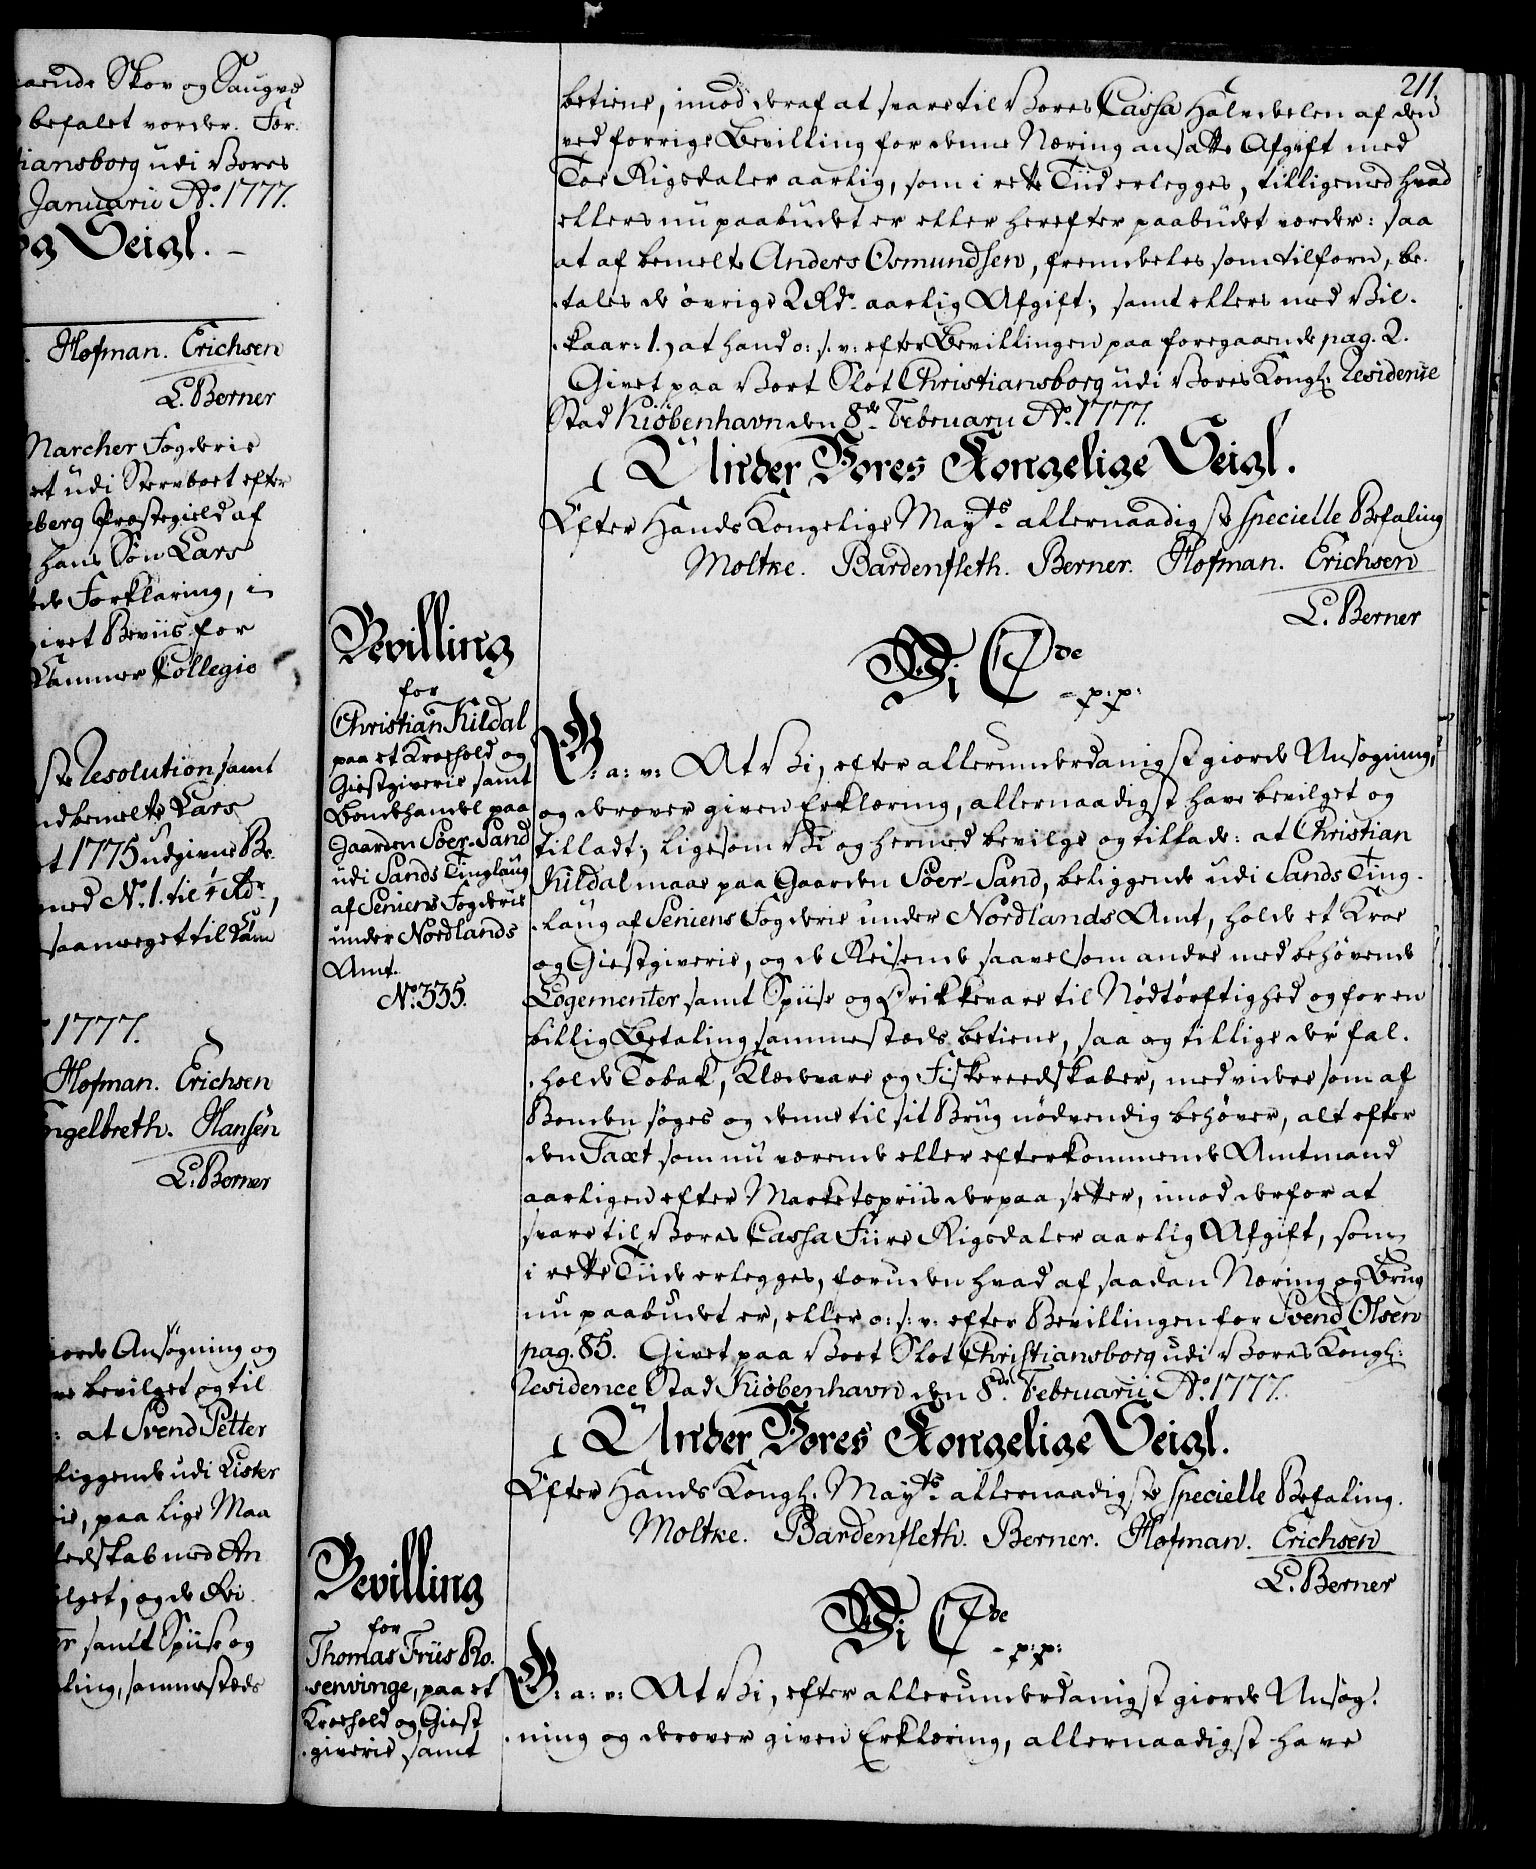 aaende Skov og Saugve
befalet vorder. For.
tiansborg udi Vores
Januarii Ao. 1777.
og Seigl.
Hofman. Erichsen
L. Berner
Marcher Fogderie
et udi Stervboet efter
eberg Præstegield af
hans Søn Lars
de Forklaring, i
givet Beviis for
Kammer Collegio
ste Resolution samt
ndbemelte Lars
t 1775 udgivne Be-
med No. 1. til 4 Rdr.,
saameget til Kam
1777.
Hofman. Erichsen
ngelbreth. Hansen
L. Berner
iorde Ansøgning og
ve bevilget og til
: at Svend Petter
liggende udi Lister
ie, paa lige Maa
ledskab med An
lget, og de Rei
er samt Spiise og
ling, sammesteds
211.
betiene, imod deraf at svare til Vores Cassa Halvdelen af den
ved forrige Bevilling for denne Næring ansatte Afgift med
Toe Rigsdaler aarlig, som i rette Tiid erlegges, tilligemed hvad
ellers nu paabudet er eller herefter paabudet vorder: saa
at af bemelte Anders Osmundsen, fremdeles som tilforn, be-
tales de øvrige 2 Rdr. aarlig Afgift; samt ellers med Vil-
kaar: 1.) at hand o: s: v: efter Bevillingen paa foregaaende pag. 2.
Givet paa Vort Slot Christiansborg udi Vores Kongl: Residence
Stad Kiøbenhavn den 8de Februarii Ao. 1777.
Under Vores Kongelige Seigl.
Efter Hands Kongelige Mayts. allernaadigste specielle Befaling
Moltke. Bardenfleth. Berner. Hofman. Erichsen
L. Berner
Bevilling
for
Christian Kildal
paa et Kroehold og
Giestgiverie samt
Bondehandel paa
Gaarden Söer-Sand
udi Sands Tinglaug
af Seniens Fogderie
under Nordlands
Amt.
No. 335.
Vi C 7de
p: p:
G: a: v: At Vi, efter allerunderdanigst giorde Ansøgning,
og derover given Erklæring, allernaadigst have bevilget og
tilladt; ligesom Vi og hermed bevilge og tillade: at Christian
Kildal maae paa Gaarden Söer-Sand, beliggende udi Sands Ting-
laug af Seniens Fogderie under Nordlands Amt, holde et Kroe
og Giestgiverie, og de Reisende saavelsom andre med behøvende
Logementer samt Spiise og Drikkevare til Nødtørftighed og for en
billig Betaling sammesteds betiene, saa og tillige der fal-
holde Tobak, Klædevare og Fiskereedskaber, med videre som af
Bonden søges og denne til sit Brug nødvendig behøver, alt efter
den Taxt som nu værende eller efterkommende Amtmand
aarligen efter Markedspriis derpaa setter, imod derfor at
svare til Vores Cassa Fiire Rigsdaler aarlig Afgift, som
i rette Tiide erlegges, foruden hvad af saadan Næring og Brug
nu paabudet er, eller o: s: v: efter Bevillingen for Svend Olsen
pag. 85. Givet paa Vort Slot Christiansborg udi Vores Kongl:
Residence Stad Kiøbenhavn den 8de Februarii Ao. 1777.
Under Vores Kongelige Seigl.
Efter Hands Kongl: Mayts. allernaadigste specielle Befaling.
Moltke. Bardenfleth. Berner. Hofman. Erichsen
L. Berner
Bevilling
for
Thomas Friis Ro-
senvinge, paa et
Kroehold og Giest
giverie samt
Vi C 7de
p: p:
G: a: v: At Vi, efter allerunderdanigst giorde Ansøg-
ning og derover given Erklæring, allernaadigst have